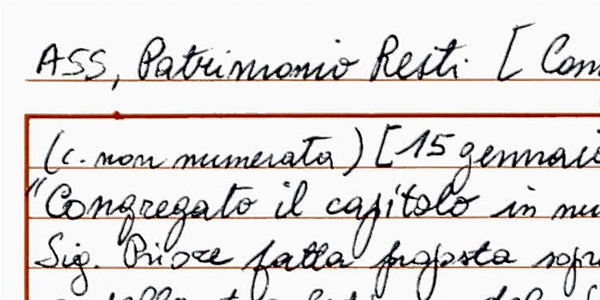 ASS, Patrimonio Resti [
(c. non numerata) [15 gennaio
"Congregato il capitolo in
Sig. Priore fatta proposta